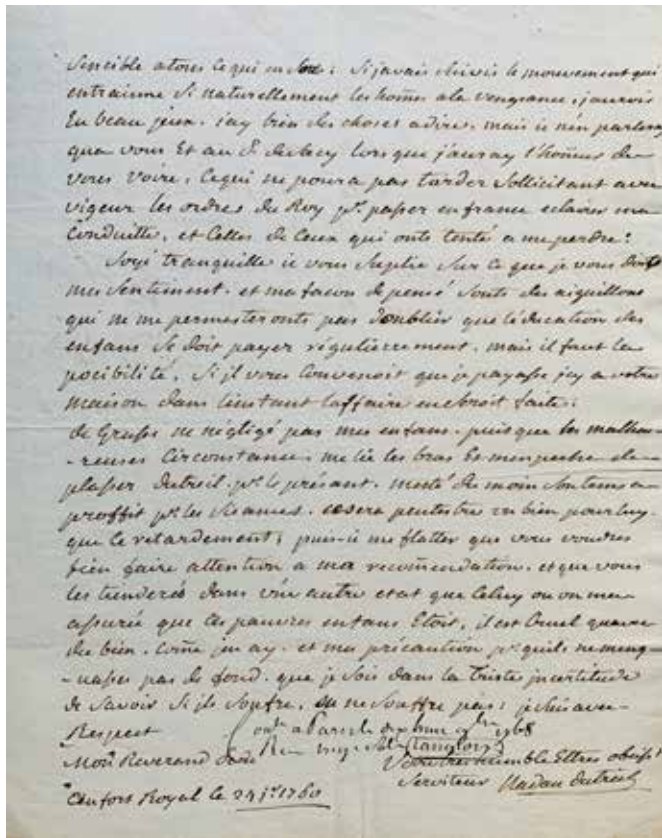 Sencible a tores ce qui en : Si javais Suivis le mouvement qui
entrainne Si naturellement les hom̃es a la vengeance, jaurois
Eu beau jeux. jay bien des choses a dire, mais ie n'en parleray
qua vous Et au lorsque j'auray l'hom̃eur de
vous Voire, Ce qui ne poura pas tarder Sollicitant avec
vigeur les ordres du Roy pr. passer en france eclairer ma
Conduitte, et Celles de Ceux qui onts tenté a me perdre:
Soyé tranquille ie vous Suplie Sur ce que je vous doits
mes Sentiment. et ma facon de pensé Sonts des aiguillons
qui ne me permesteronts pas d'oublier que l'éducation des
enfans Se doit payer régulierrement. mais il faut la
pocibilité. Si il vous Convenoit que je payasse jcy a votre
maison dans l'instant l'affaire en Seroit faite:
de Grasse ne négligé pas mes enfans. puis que les malheu-
-reuses Circonstance me lie les bras Et m'enpeche de
plasser Dutreil. pr. le présant. mesté du moin Son tems a
proffit pr. les Siences. ce Sera peutestre un bien pour luy.
que ce retardement; puis-ie me flatter que vous voudrés
bien faire attention a ma recom̃endation. et que vous
les tienderés dans une autre etat que Celuy ou on m'a
assurée que Ces pauvres enfans Etoit, il est Cruel qu'avec
du bien. Com̃e j'en ay. et mes précaution pr. quils ne menq-
-uasses pas de fond. que je Sois dans la triste incertitude
de Savoir Si ils Soufre, ou ne Souffre pas; je Suis avec
Respect
a Paris le 9bre 1768
Langlois
Mon Reverand
Votre tres humble Et tres obeisst
Serviteur Nadau Dutreil
Au fort Royal le 24 1760